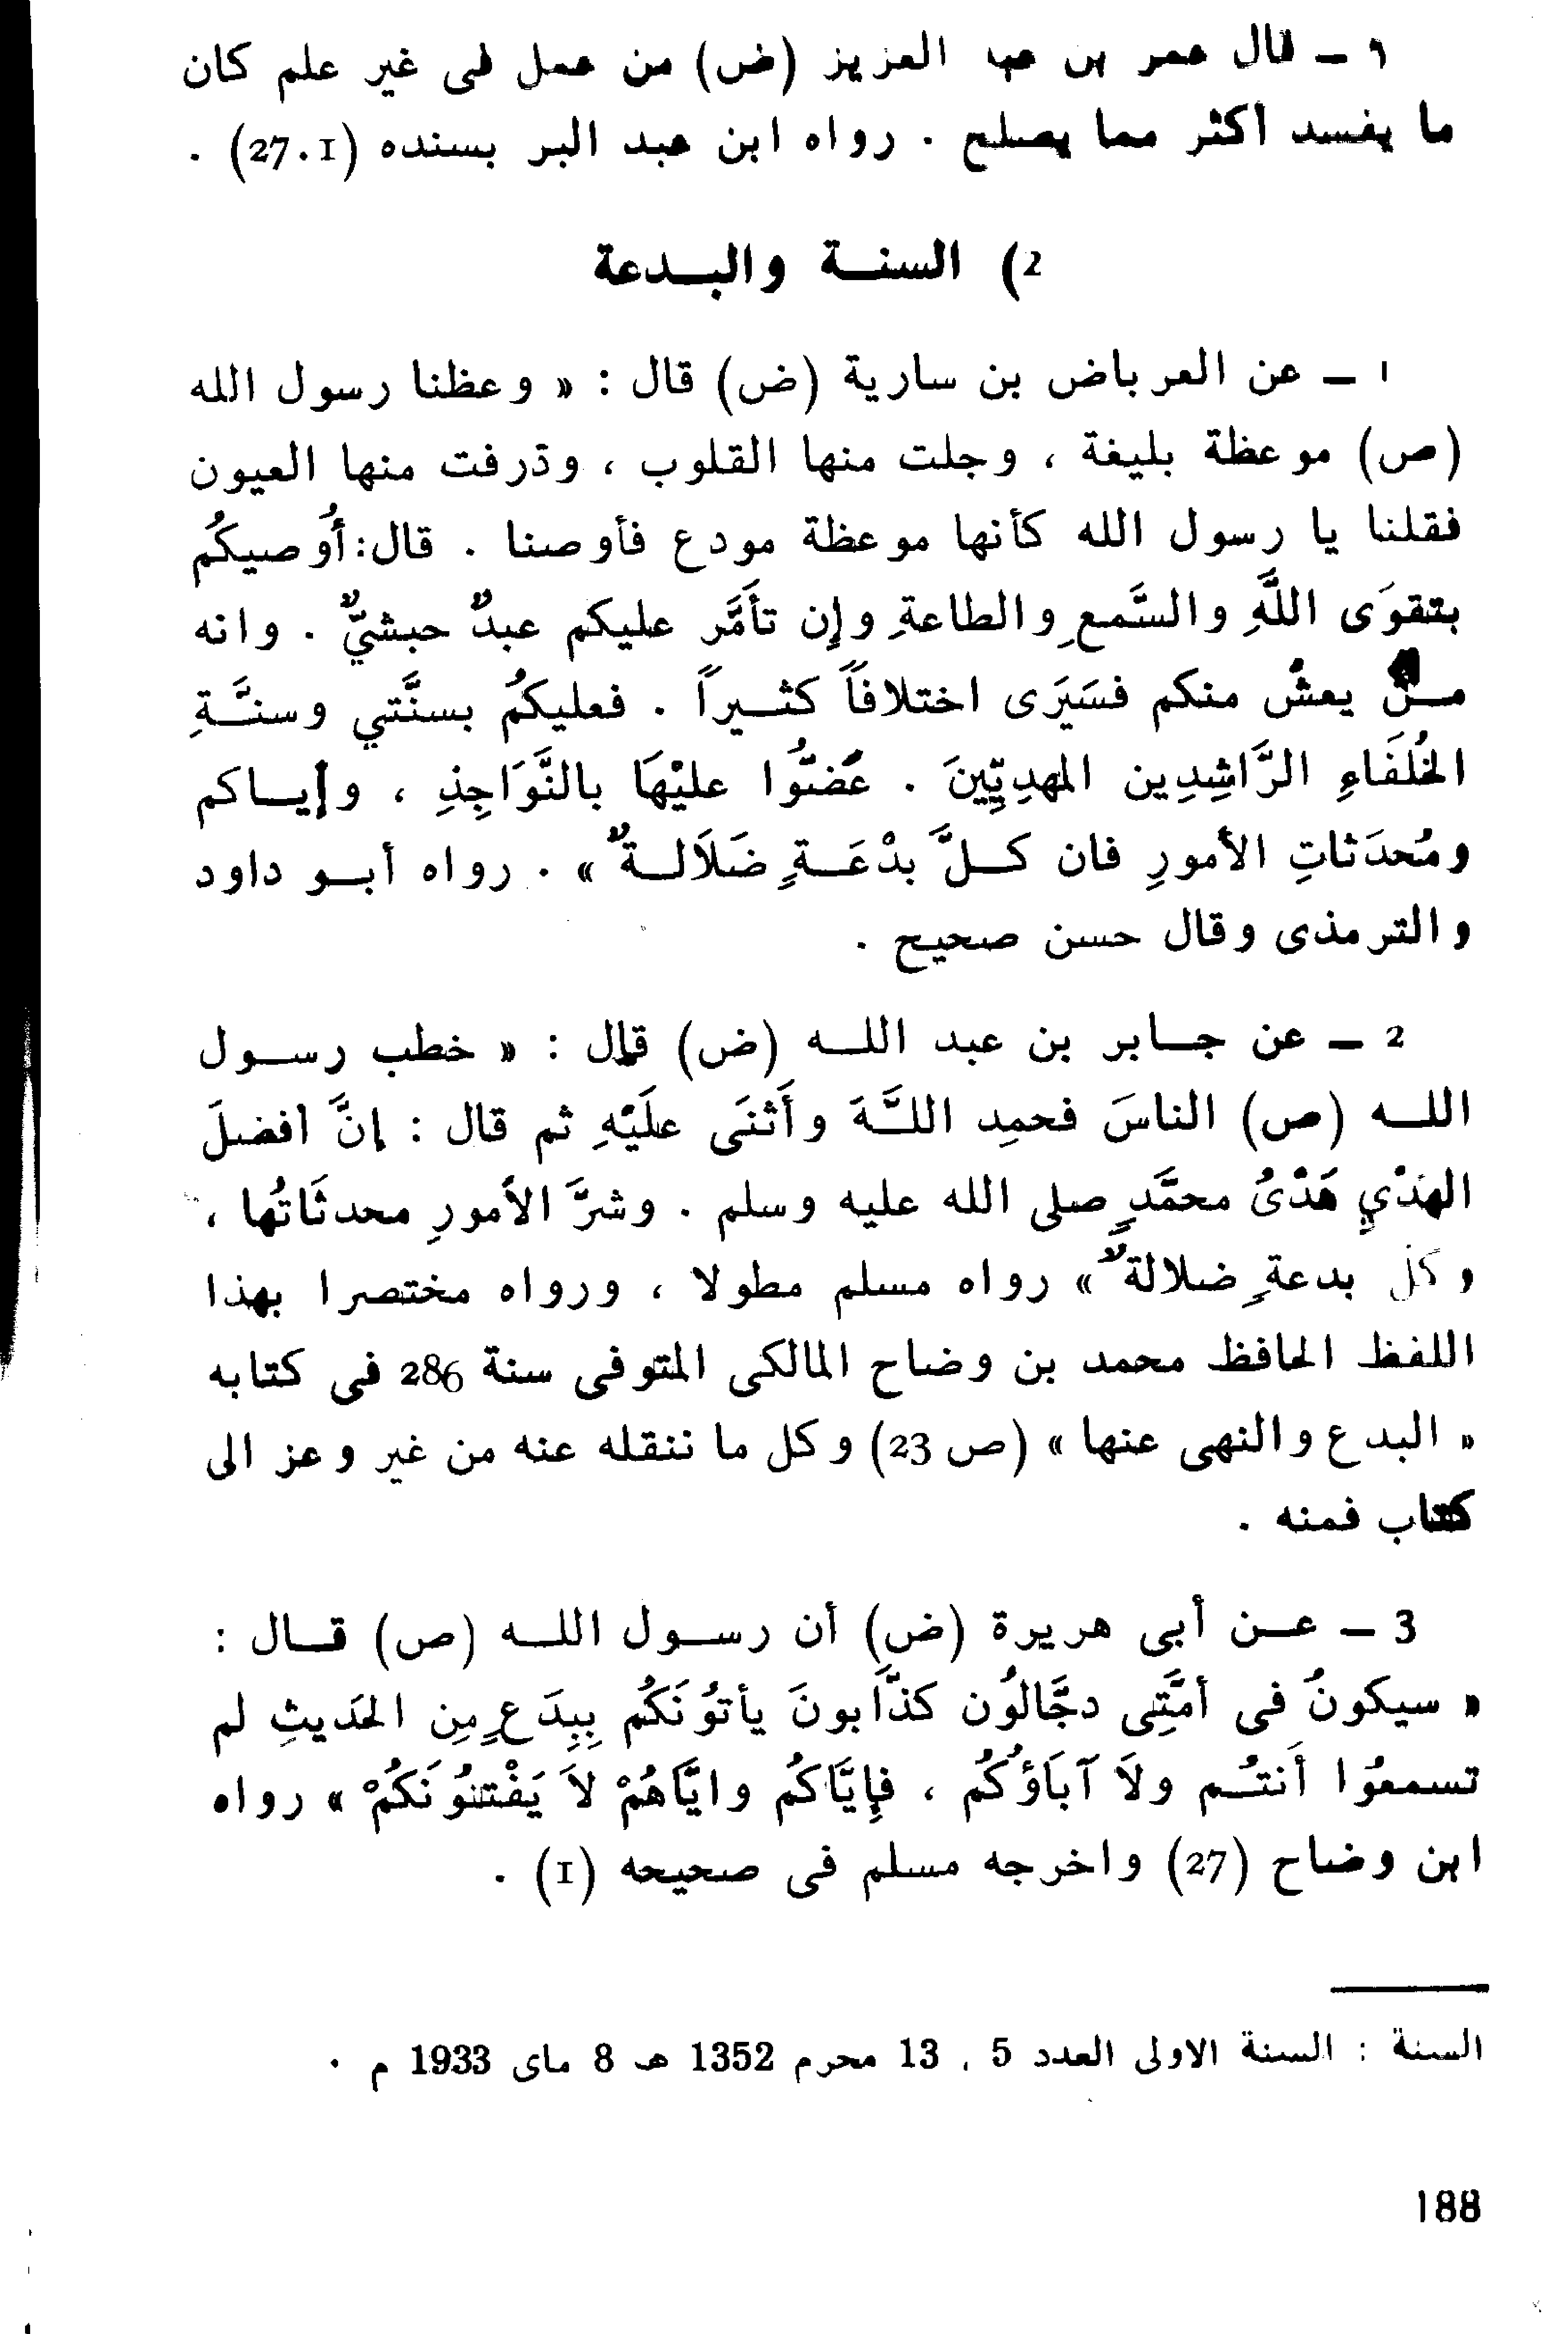 ٦ — قال عمر بن عبد العزيز (ض) من عمل في غير علم كان
ما يفسد أكثر مما يصلح . رواه ابن عبد البر بسنده (27.1) .
2) السنـة والبـدعة
1 — عن العرباض بن سارية (ض) قال : « وعظنا رسول الله
(ص) موعظة بليغة ، وجلت منها القلوب ، وذرفت منها العيون
فقلنا يا رسول الله كأنها موعظة مودع فأوصنا . قال: أُوصيكُم
بتقوَى اللَّهِ والسَّمعِ والطاعةِ وإن تأَمَّر عليكم عبدٌ حبشيٌّ . وانه
مـنْ يعشْ منكم فسَيَرَى اختلافاً كثـيراً . فعليكمُ بسنَّتي وسنـَّةِ
الخُلَفَاءِ الرَّاشِدِين المهدِيِّينَ . عَضُّوا عليْهَا بالنَّوَاجِذِ ، وإيـاكم
ومُحدَثاتِ الأمورِ فان كـلَّ بدْعَـةٍ ضَلاَلـةٌ » . رواه أبـو داود
والترمذى وقال حسن صحيح .
2 — عن جـابر بن عبد اللـه (ض) قال : « خطب رسـول
اللـه (ص) الناسَ فحمِد اللـَّهَ وأَثنَى علَيْهِ ثم قال : إنَّ افضلَ
الهَدْيِ هَدْىُ محمَّدٍ صلى الله عليه وسلم . وشرَّ الأمورِ محدثَاتُها ،
وكل بدعةٍ ضلالةٌ » رواه مسلم مطولا ، ورواه مختصرا بهذا
اللفظ الحافظ محمد بن وضاح المالكى المتوفى سنة 286 فى كتابه
« البدع والنهى عنها » (ص 23) وكل ما ننقله عنه من غير وعز الى
كتاب فمنه .
3 — عـن أبى هريرة (ض) أن رسـول اللـه (ص) قـال :
« سيكونُ فى أمَّتِى دجَّالُون كذَّابونَ يأتوُنَكُم بِبِدَعٍ مِن الحَديثِ لم
تسمعوُا أَنتـُم ولاَ آبَاؤُكُم ، فإِيَّاكُم وايَّاهُمْ لاَ يَفْتنوُنَكُمْ » رواه
ابن وضاح (27) واخرجه مسلم فى صحيحه (1) .
السنة : السنة الاولى العدد 5 ، 13 محرم 1352 هـ 8 ماى 1933 م .
188